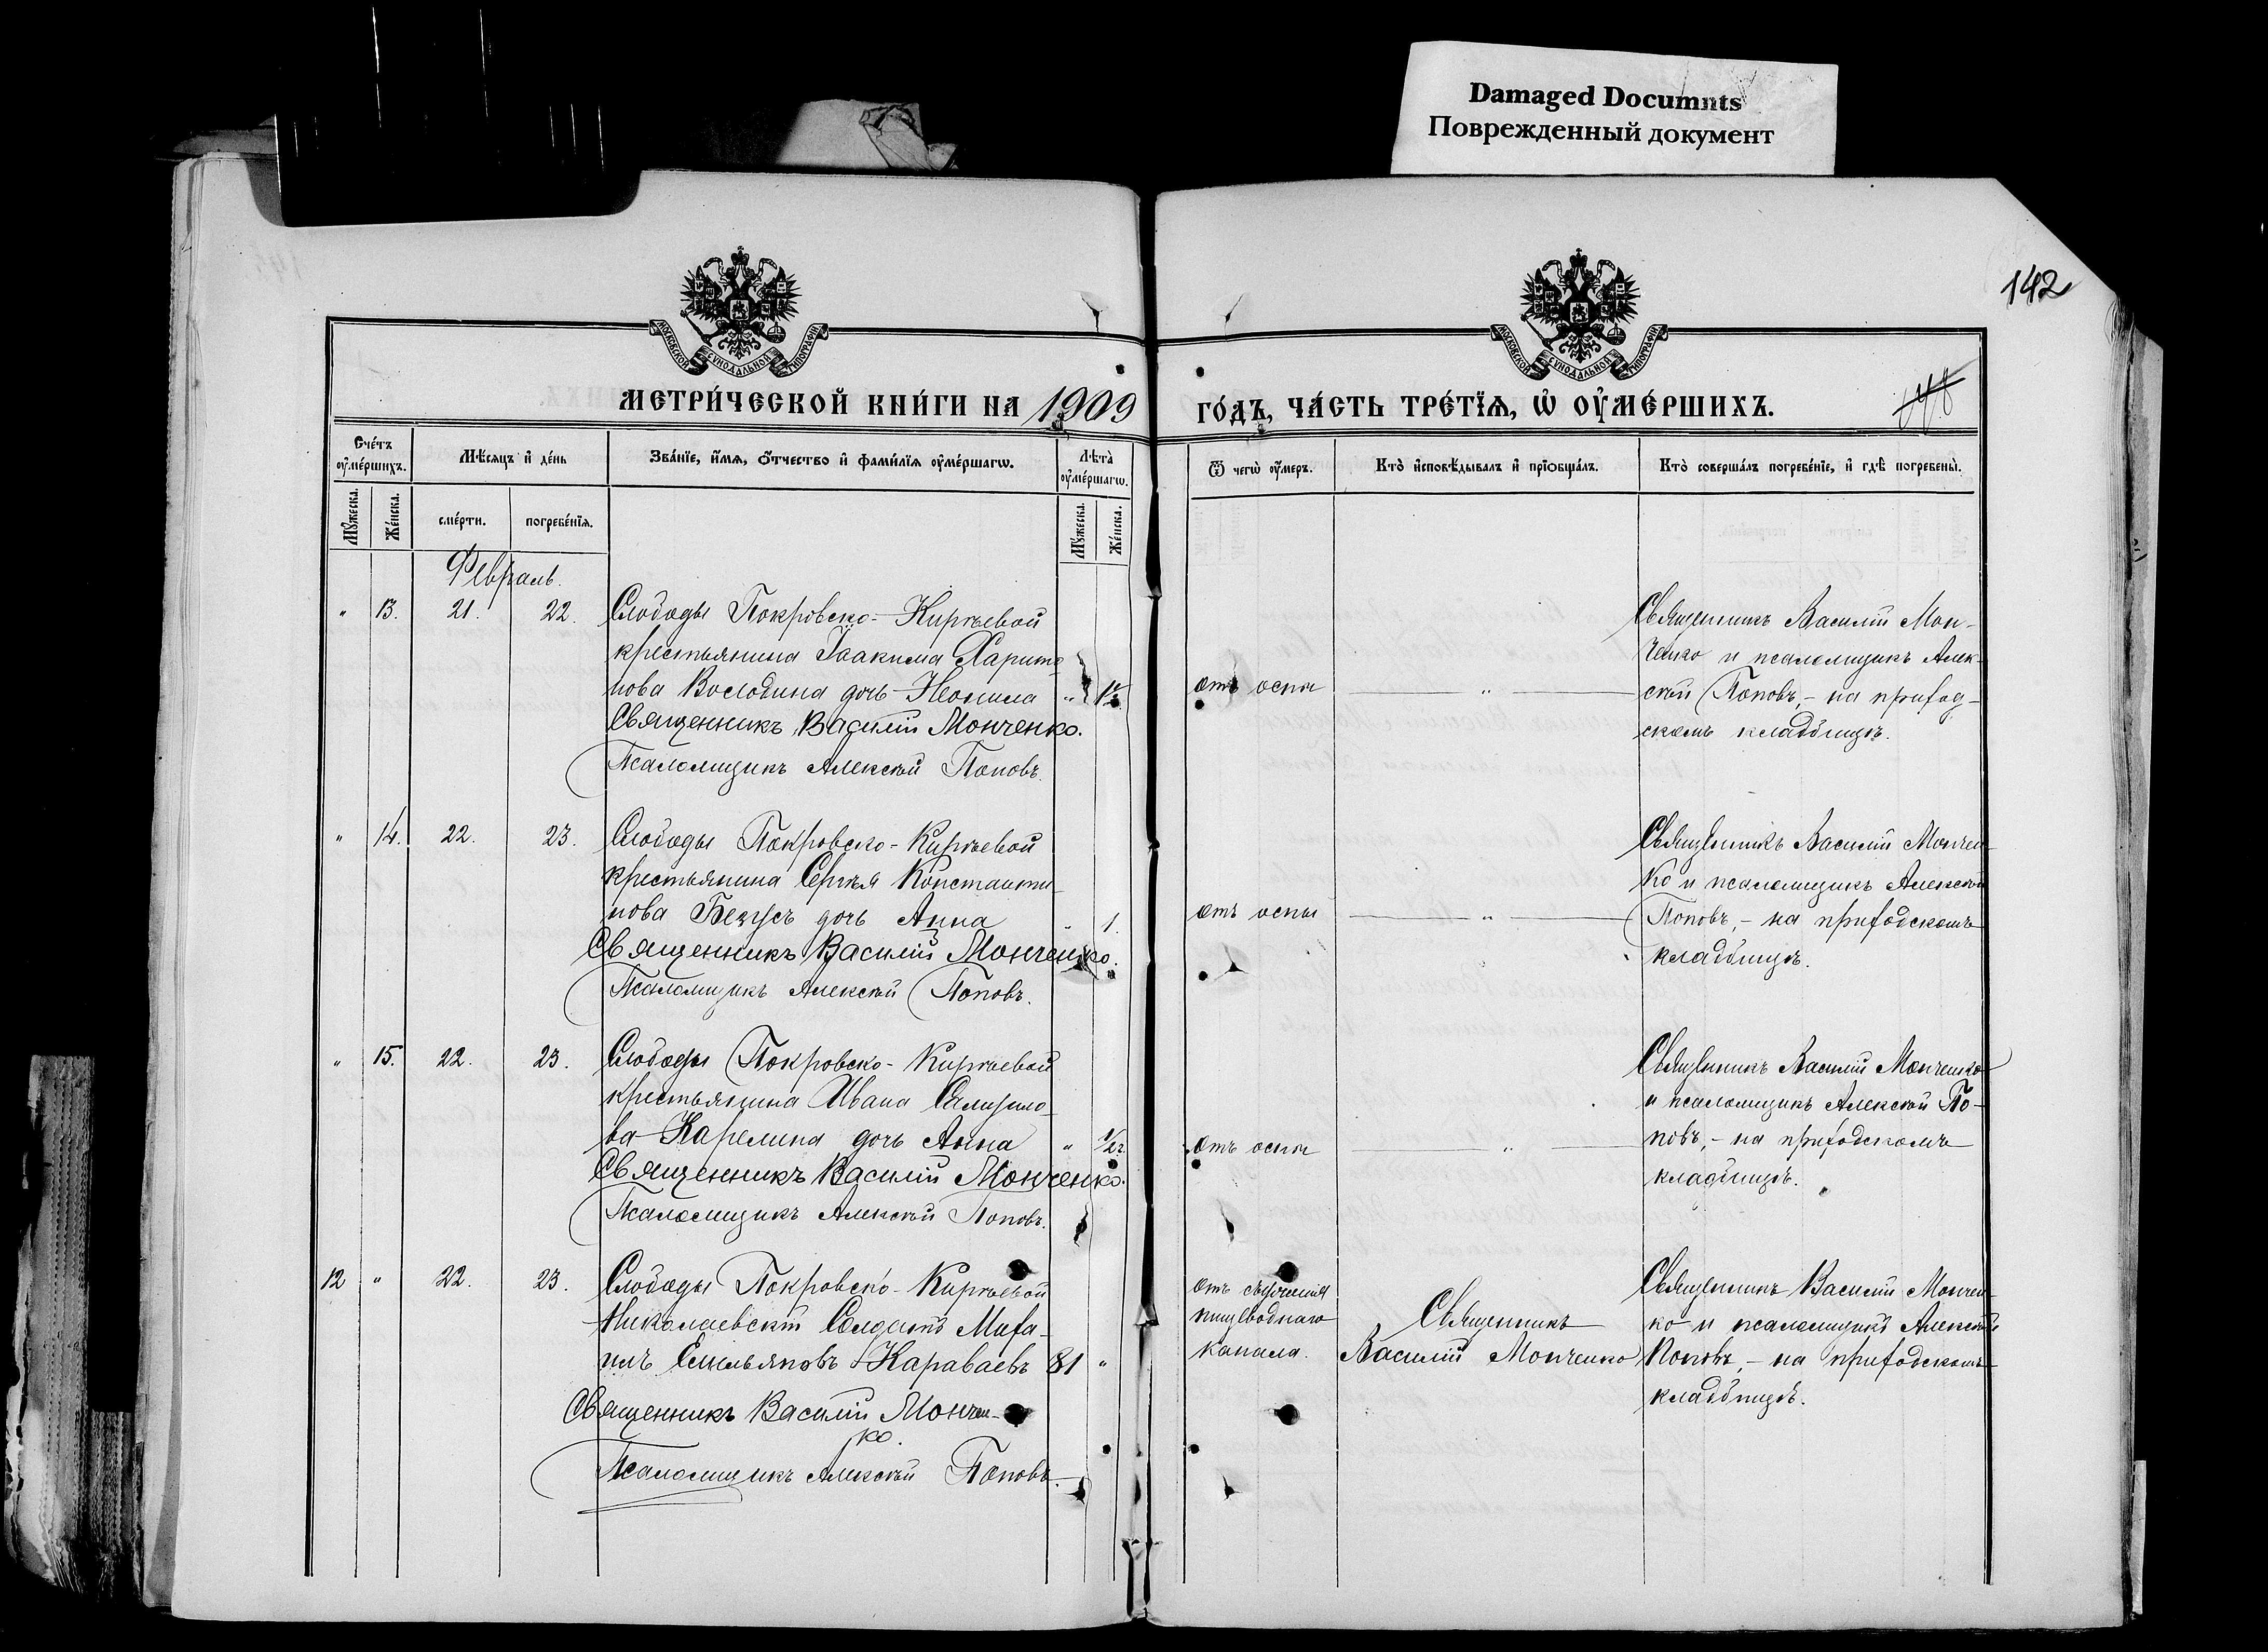 Damaged Documnts
Поврежденный документ
142
МОСКОВСКОЙ СѴНОДАЛЬНОЙ ТИПОГРАФІИ
МОСКОВСКОЙ СѴНОДАЛЬНОЙ ТИПОГРАФІИ
МЕТРИ́ЧЕСКОЙ КНИ́ГИ НА 1909
ГО́ДЪ, ЧА́СТЬ ТРЕ́ТЇѦ, Ѡ҆ ОУ҆МЕ́РШИХЪ.
Счетъ оумершихъ.
Мѣсяцъ и день
Званїе, имя, отчество и фамилїя оумершагω.
Лѣта оумершагω.
Ѿ чегω оумеръ.
Кто исповѣдывалъ и прїобщалъ.
Кто совершалъ погребенїе, и гдѣ погребены.
Мужеска.
Женска.
смерти.
погребенїя.
Мужеска.
Женска.
Февраль.
" 13. 21. 22.
Слободы Покровско-Кирѣевой
крестьянина Іоакима Харито
нова Володина дочь Неонила "
Священникъ Василій Монченко.
Псаломщикъ Алексѣй Поповъ.
отъ оспы
"
Священникъ Василій Мон-
ченко и псаломщикъ Алек-
сѣй Поповъ,- на приход-
скомъ кладбищѣ.
" 14. 22. 23.
Слободы Покровско-Кирѣевой
крестьянина Сергѣя Константи-
нова Безусъ дочь Анна " 1.
Священникъ Василій Монченко.
Псаломщикъ Алексѣй Поповъ.
отъ оспы
"
Священникъ Василій Мончен-
ко и псаломщикъ Алексѣй
Поповъ,- на приходскомъ
кладбищѣ.
" 15. 22. 23.
Слободы Покровско-Кирѣевой
крестьянина Ивана
ва Карелина дочь Анна " 1/2 г.
Священникъ Василій Монченко.
Псаломщикъ Алексѣй Поповъ.
отъ оспы
"
Священникъ Василій Монченко
и псаломщикъ Алексѣй По-
повъ,- на приходскомъ
кладбищѣ.
12 " 22. 23.
Слободы Покровско-Кирѣевой
Николаевскій Солдатъ Миха-
илъ Емельяновъ Караваевъ 81 "
Священникъ Василій Мончен-
ко.
Псаломщикъ Алексѣй Поповъ.
отъ съуженія
пищеводнаго
канала.
Священникъ
Василій Монченко
Священникъ Василій Мончен-
ко и псаломщикъ Алексѣй
Поповъ,- на приходскомъ
кладбищѣ.